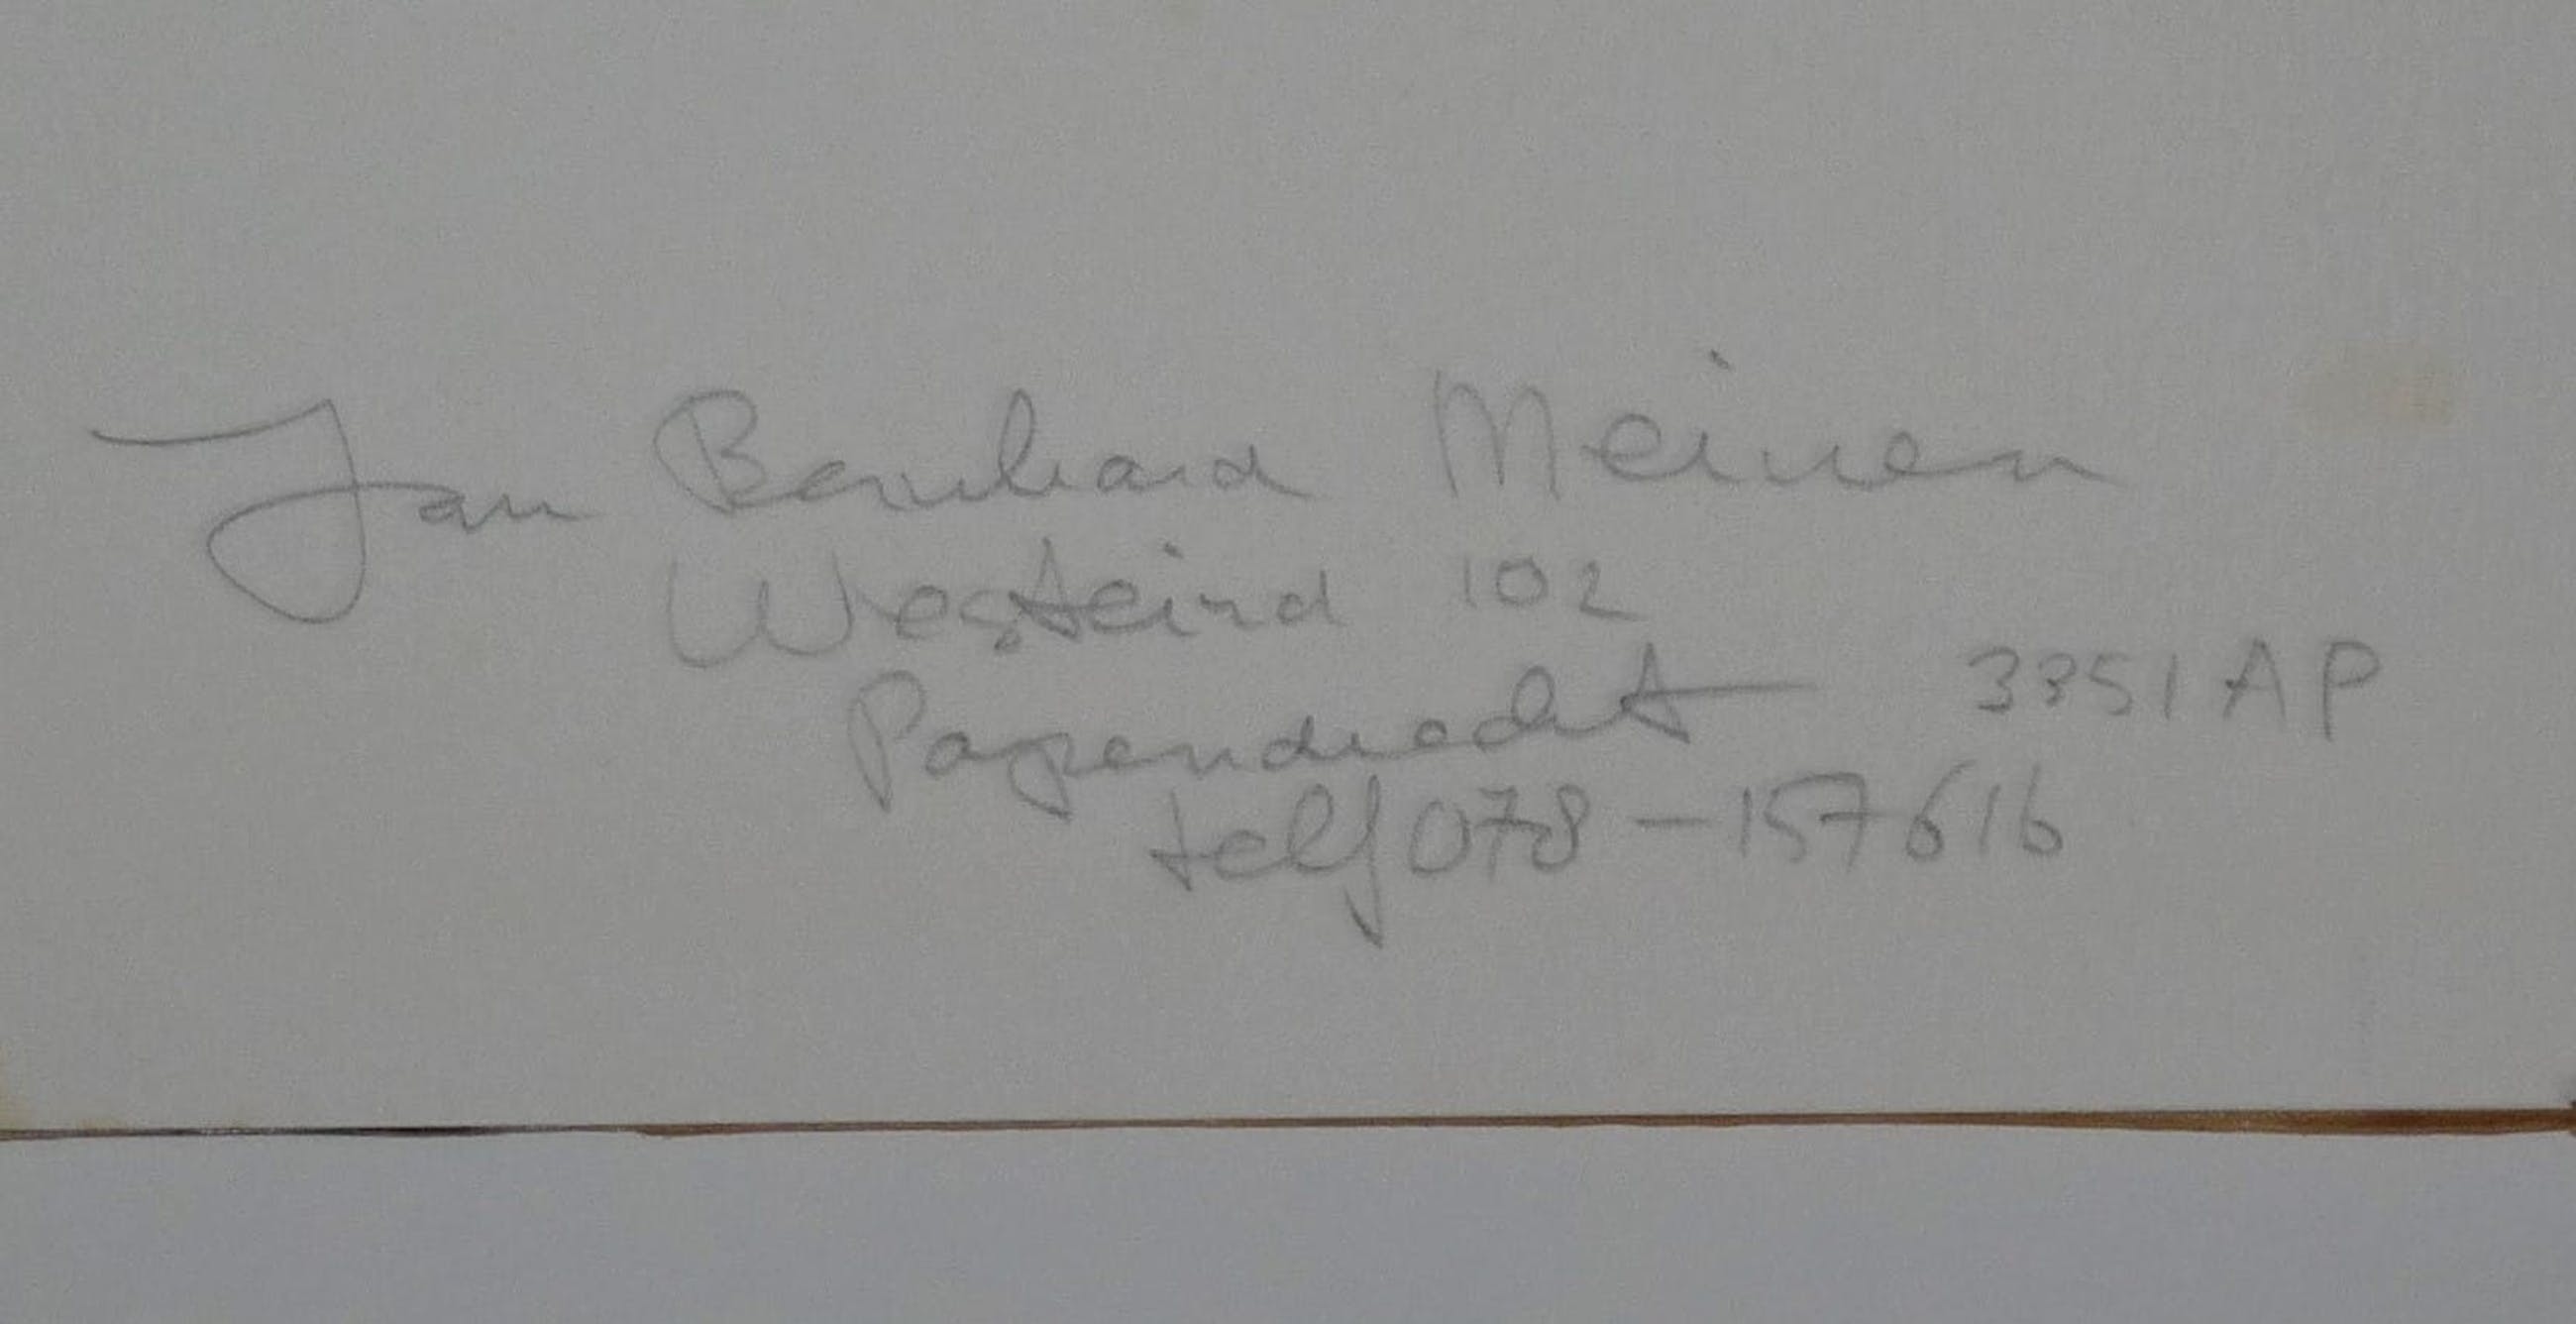 Jan Bernhard Meinen
Westeind 102
Papendrecht 3351 AP
telf 078-157616